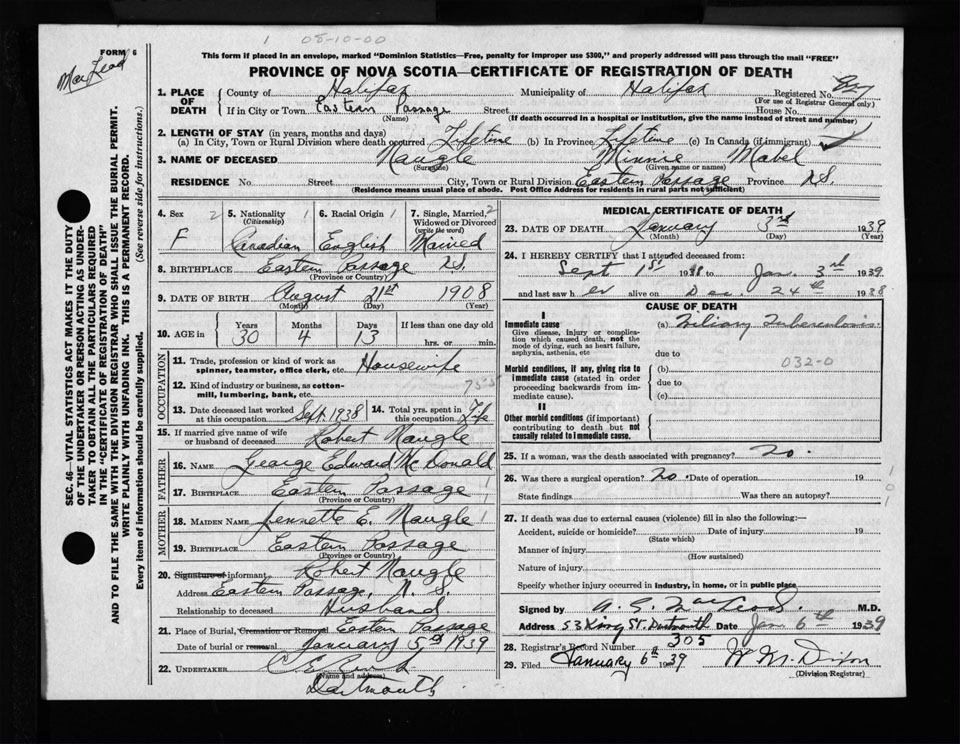 1 08-10-00
FORM 6
MacLeod
This form if placed in an envelope, marked "Dominion Statistics—Free, penalty for improper use $300," and properly addressed will pass through the mail "FREE"
PROVINCE OF NOVA SCOTIA—CERTIFICATE OF REGISTRATION OF DEATH
SEC. 46—VITAL STATISTICS ACT MAKES IT THE DUTY
OF THE UNDERTAKER OR PERSON ACTING AS UNDER-
TAKER TO OBTAIN ALL THE PARTICULARS REQUIRED
IN THE "CERTIFICATE OF REGISTRATION OF DEATH"
AND TO FILE THE SAME WITH THE DIVISION REGISTRAR WHO SHALL ISSUE THE BURIAL PERMIT.
WRITE PLAINLY WITH UNFADING INK. THIS IS A PERMANENT RECORD.
Every item of information should be carefully supplied. (See reverse side for instructions.)
1. PLACE OF DEATH County of Halifax Municipality of Halifax Registered No.
(For use of Registrar General only)
If in City or Town Eastern Passage Street House No.
(Name) (If death occurred in a hospital or institution, give the name instead of street and number)
2. LENGTH OF STAY (in years, months and days)
(a) In City, Town or Rural Division where death occurred Lifetime (b) In Province Lifetime (c) In Canada (if immigrant)
3. NAME OF DECEASED Naugle Minnie Mabel
(Surname) (Given name or names)
RESIDENCE No. Street City, Town or Rural Division Eastern Passage Province N.S.
(Residence means usual place of abode. Post Office Address for residents in rural parts not sufficient)
4. Sex 2 5. Nationality 1 6. Racial Origin 1 7. Single, Married, 2
(Citizenship) Widowed or Divorced
(write the word)
F Canadian English Married
8. BIRTHPLACE Eastern Passage N.S.
(Province or Country)
9. DATE OF BIRTH August 21st 1908
(Month) (Day) (Year)
10. AGE in Years Months Days If less than one day
30 4 13 hrs. or min.
OCCUPATION
11. Trade, profession or kind of work as
spinner, teamster, office clerk, etc. Housewife
12. Kind of industry or business, as cotton-
mill, lumbering, bank, etc.
13. Date deceased last worked at this occupation Sept. 1938 14. Total yrs. spent in this occupation Life
15. If married give name of wife
or husband of deceased Robert Naugle
FATHER
16. NAME George Edward McDonald
17. BIRTHPLACE Eastern Passage
(Province or Country)
MOTHER
18. MAIDEN NAME Jennette E. Naugle
19. BIRTHPLACE Eastern Passage
(Province or Country)
20. Signature of informant Robert Naugle
Address Eastern Passage, N.S.
Relationship to deceased Husband
21. Place of Burial, Cremation or Removal Eastern Passage
Date of burial or removal January 5th 1939
22. UNDERTAKER
(Name and address)
Dartmouth
MEDICAL CERTIFICATE OF DEATH
23. DATE OF DEATH January 3rd 1939
(Month) (Day) (Year)
24. I HEREBY CERTIFY that I attended deceased from:
Sept 1st 1938 to Jan. 3rd 1939
and last saw her alive on Dec. 24th 1938
CAUSE OF DEATH
I
Immediate cause (a) Miliary Tuberculosis
Give disease, injury or complica-
tion which caused death, not the
mode of dying, such as heart failure,
asphyxia, asthenia, etc due to
032-0
Morbid conditions, if any, giving rise to (b)
immediate cause (stated in order due to
proceeding backwards from im-
mediate cause). (c)
II
Other morbid conditions (if important)
contributing to death but not
causally related to immediate cause.
25. If a woman, was the death associated with pregnancy? No.
26. Was there a surgical operation? No. Date of operation 19
State findings Was there an autopsy?
27. If death was due to external causes (violence) fill in also the following:—
Accident, suicide or homicide? Date of injury 19
(State which)
Manner of injury
(How sustained)
Nature of injury
Specify whether injury occurred in industry, in home, or in public place
Signed by A. G. MacLeod M.D.
Address 53 King St. Dartmouth Date Jan 6th 1939
28. Registrar's Record Number 305
29. Filed January 6th 1939
(Division Registrar)